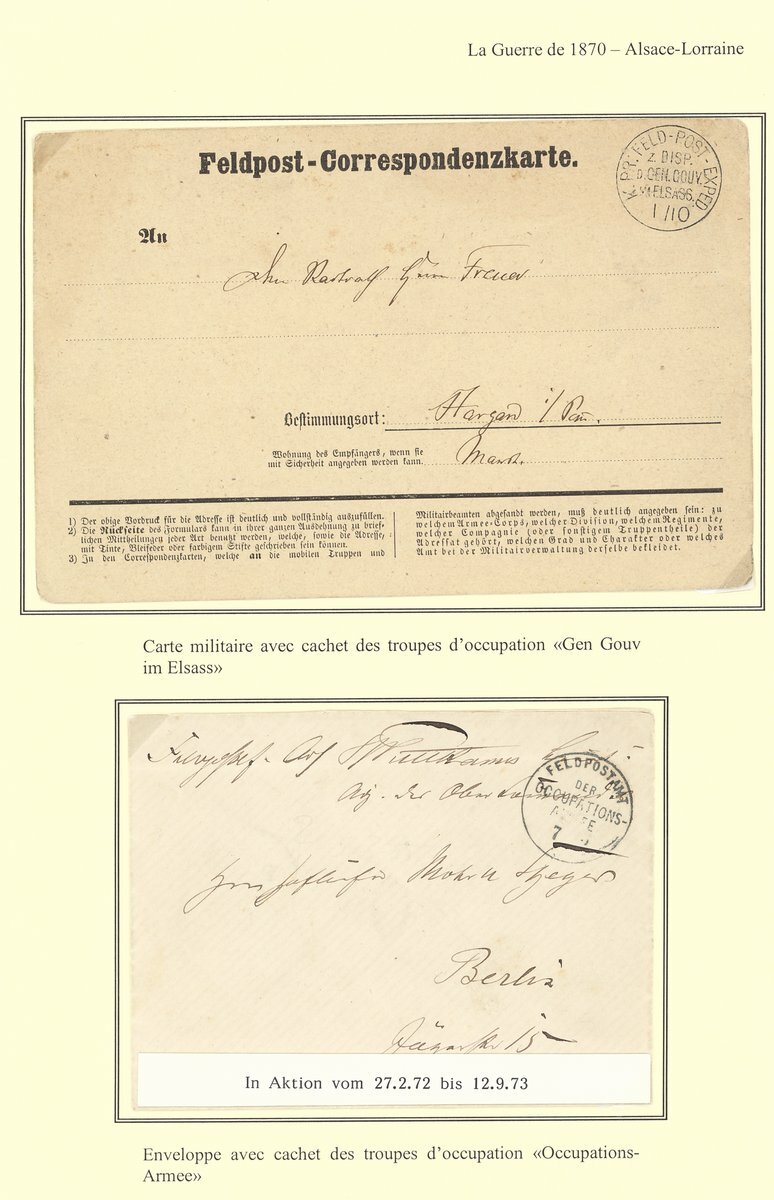 La Guerre de 1870 – Alsace-Lorraine
Feldpost-Correspondenzkarte.
K. PR. FELD-POST-EXPED.
Z. DISP.
D. GEN. GOUV.
ELSASS.
1/10
An
Herrn
Bestimmungsort:
i/ Pom.
Wohnung des Empfängers, wenn sie
mit Sicherheit angegeben werden kann.
Markt.
1) Der obige Vordruck für die Adresse ist deutlich und vollständig auszufüllen.
2) Die Rückseite des Formulars kann in ihrer ganzen Ausdehnung zu brief-
lichen Mittheilungen jeder Art benutzt werden, welche, sowie die Adresse,
mit Tinte, Bleifeder oder farbigem Stifte geschrieben sein können.
3) In den Correspondenzkarten, welche an die mobilen Truppen und
Militairbeamten abgesandt werden, muß deutlich angegeben sein: zu
welchem Armee-Corps, welcher Division, welchem Regimente,
welcher Compagnie (oder sonstigem Truppentheile) der
Adressat gehört, welchen Grad und Charakter oder welches
Amt bei der Militairverwaltung derselbe bekleidet.
Carte militaire avec cachet des troupes d’occupation «Gen Gouv
im Elsass»
FELDPOSTAMT
DER
OCCUPATIONS-
7
Berlin
15
In Aktion vom 27.2.72 bis 12.9.73
Enveloppe avec cachet des troupes d’occupation «Occupations-
Armee»